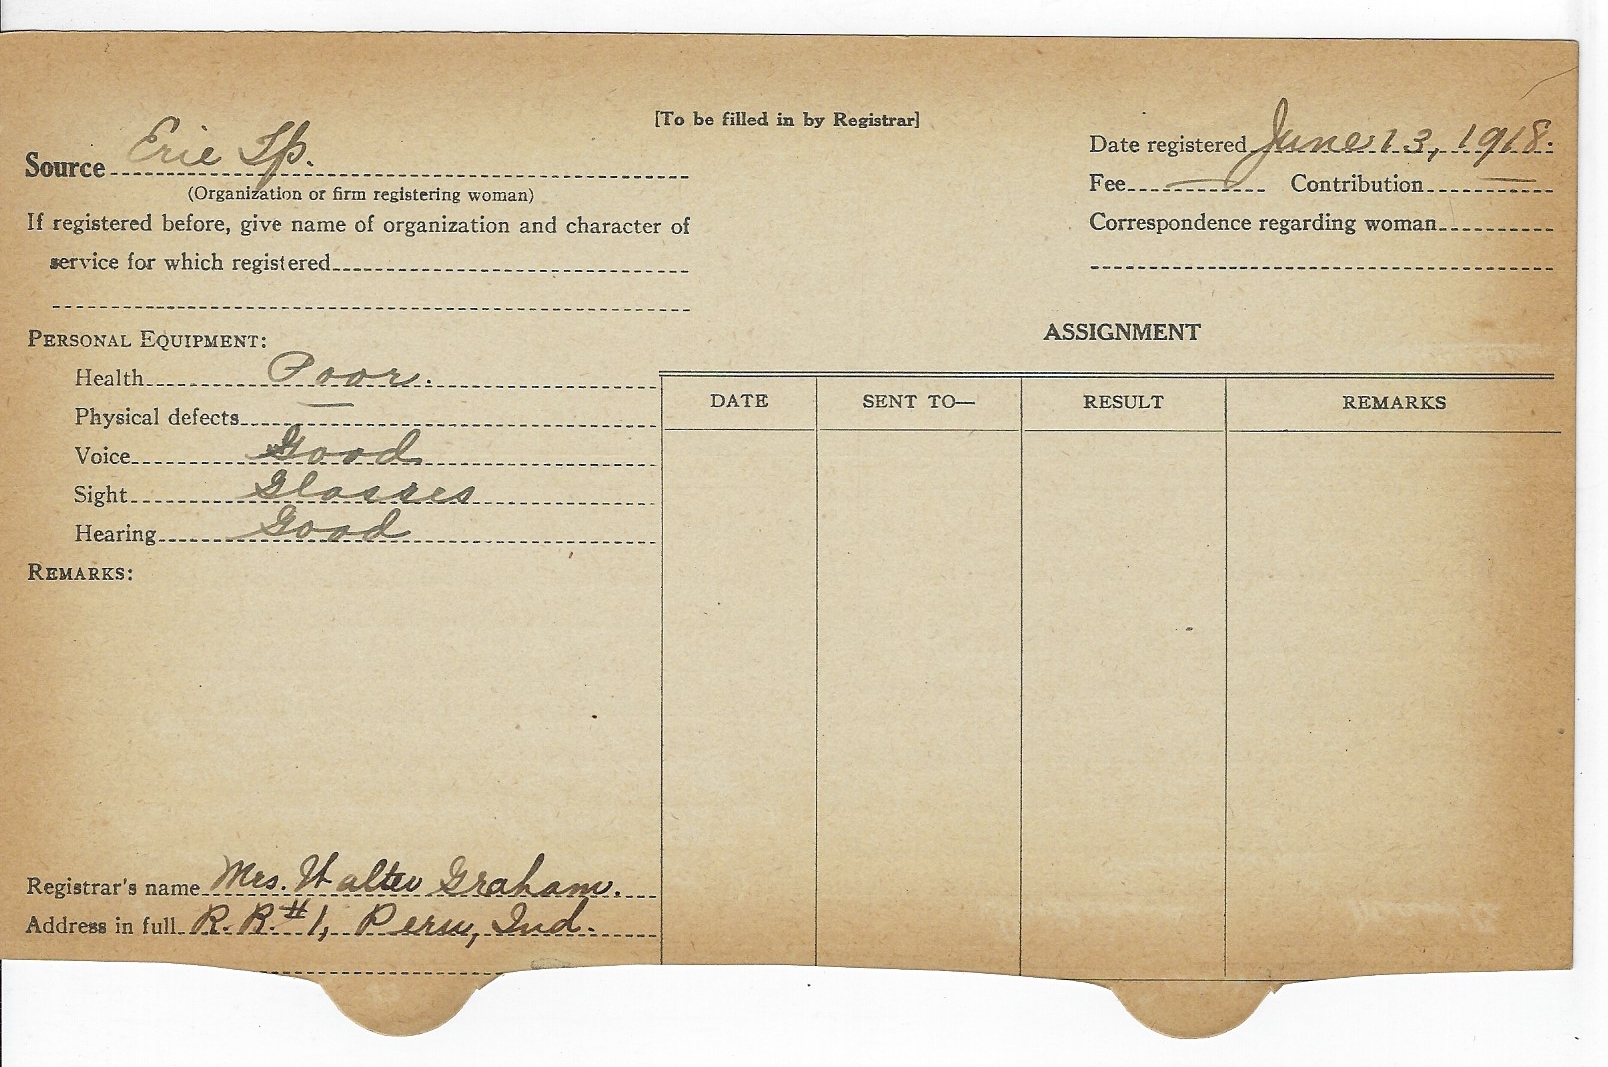 [To be filled in by Registrar]
Source Erie Tp.
(Organization or firm registering woman)
If registered before, give name of organization and character of
service for which registered
Date registered June 13, 1918.
Fee — Contribution —
Correspondence regarding woman
PERSONAL EQUIPMENT:
Health Poor.
Physical defects —
Voice Good
Sight Glasses
Hearing Good
REMARKS:
ASSIGNMENT
DATE SENT TO— RESULT REMARKS
Registrar's name Mrs. Walter Graham.
Address in full R. R. #1, Peru, Ind.